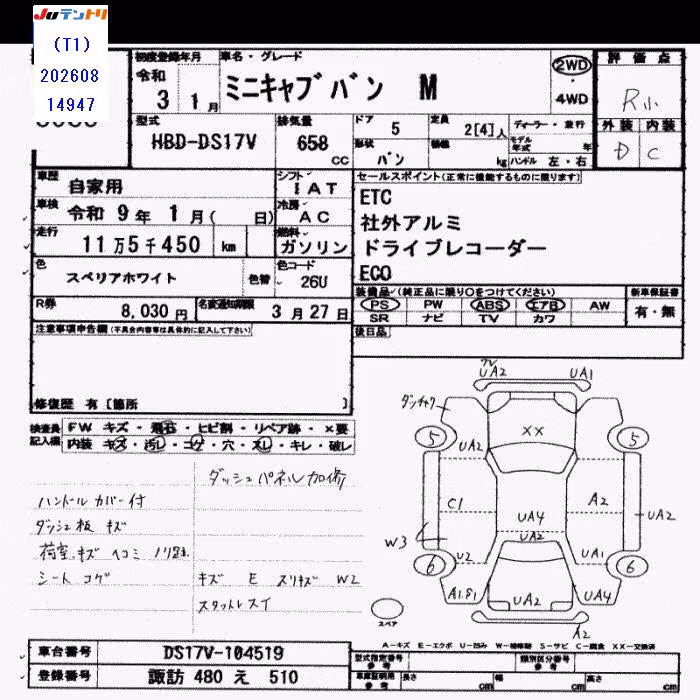 JUテントリ
(T1)
202608
14947
初度登録年月
令和
3 1月
車名・グレード
ミニキャブバン M
2WD
・
4WD
評価点
R小
外装 内装
D C
型式
HBD-DS17V
排気量
658
CC
ドア 5
定員 2[4]人
ディーラー・並行
形状 バン
積載 kg
モデル年式 年
ハンドル 左・右
車歴 自家用
シフト IAT
車検 令和 9年 1月( 日)
冷房 AC
走行 11万5千450 km
燃料 ガソリン
色 スペリアホワイト
色替
色コード 26U
R券 8,030円
名変通知期限 3月27日
セールスポイント(正常に機能するものに限ります)
ETC
社外アルミ
ドライブレコーダー
ECO
装備品(純正品に限り○をつけてください)
新車保証書
PS PW ABS エアB AW
有・無
SR ナビ TV カワ
後日品
注意事項申告欄(不具合内容等は具体的に記入して下さい)
修復歴 有〔箇所 〕
検査員記入欄
FW キズ・飛石・ヒビ割・リペア跡・×要
内装 キズ・汚レ・コゲ・穴・スレ・キレ・破レ
ダッシュパネル加修
ハンドルカバー付
ダッシュ板キズ
荷室キズ ヘコミ ノリ跡
シート コゲ
キズ E スリキズ W2
スタットレスイ
UA2 UA1
ダッチャク
XX
5 5
UA2
C1 A2
UA4 UA2
UA2
W3
U2 UA1
6 6
A1.B1 UA2 UA4
A2
スペア
A-キズ E-エクボ U-凹み W-補修跡 S-サビ C-腐食 XX-交換済
車台番号 DS17V-104519
登録番号 諏訪 480 え 510
型式指定番号
参考
類別区分番号
参考
車庫証明用
参考
長さ cm
幅 cm
高さ cm